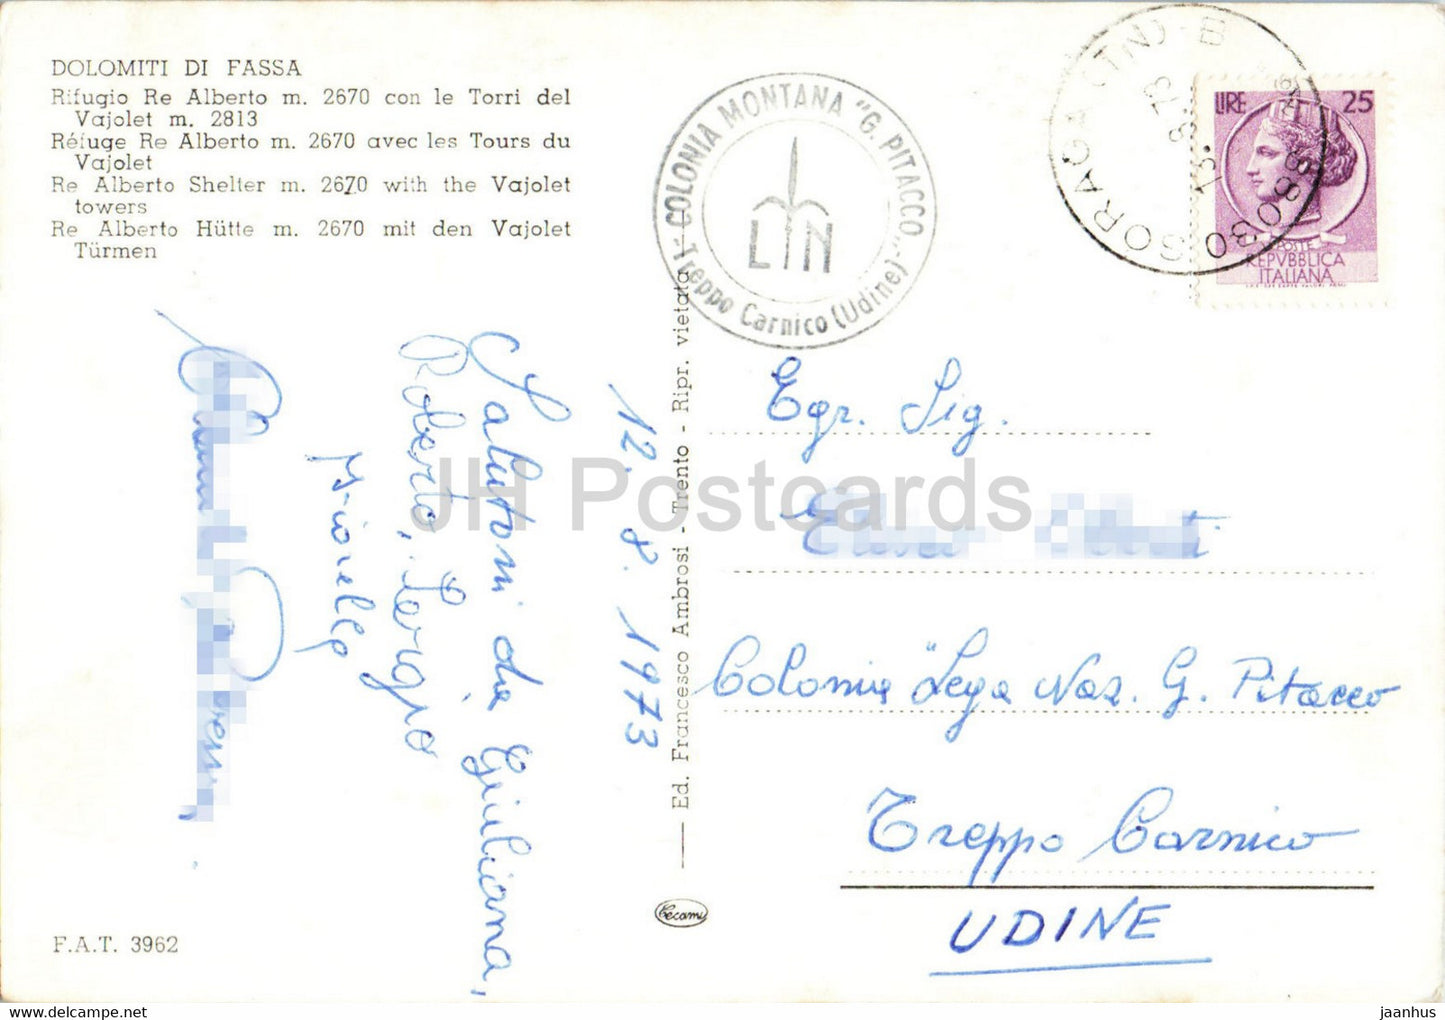 DOLOMITI DI FASSA
Rifugio Re Alberto m. 2670 con le Torri del
Vajolet m. 2813
Réfuge Re Alberto m. 2670 avec les Tours du
Vajolet
Re Alberto Shelter m. 2670 with the Vajolet
towers
Re Alberto Hütte m. 2670 mit den Vajolet
Türmen
COLONIA MONTANA "G. PITACCO"
LN
Treppo Carnico (Udine)
38030 SORAGA (TN) B
13. 8. 73
LIRE 25
POSTE
REPVBBLICA
ITALIANA
12. 8. 1973
Salutoni da Giuliana,
Roberto, Sergio
Mirella
Ed. Francesco Ambrosi - Trento - Ripr. vietata
Cecami
Egr. Sig.
Colonia "Lega Naz. G. Pitacco
Treppo Carnico
UDINE
F.A.T. 3962
JH Postcards
jaanhus
https://www.delcampe.net